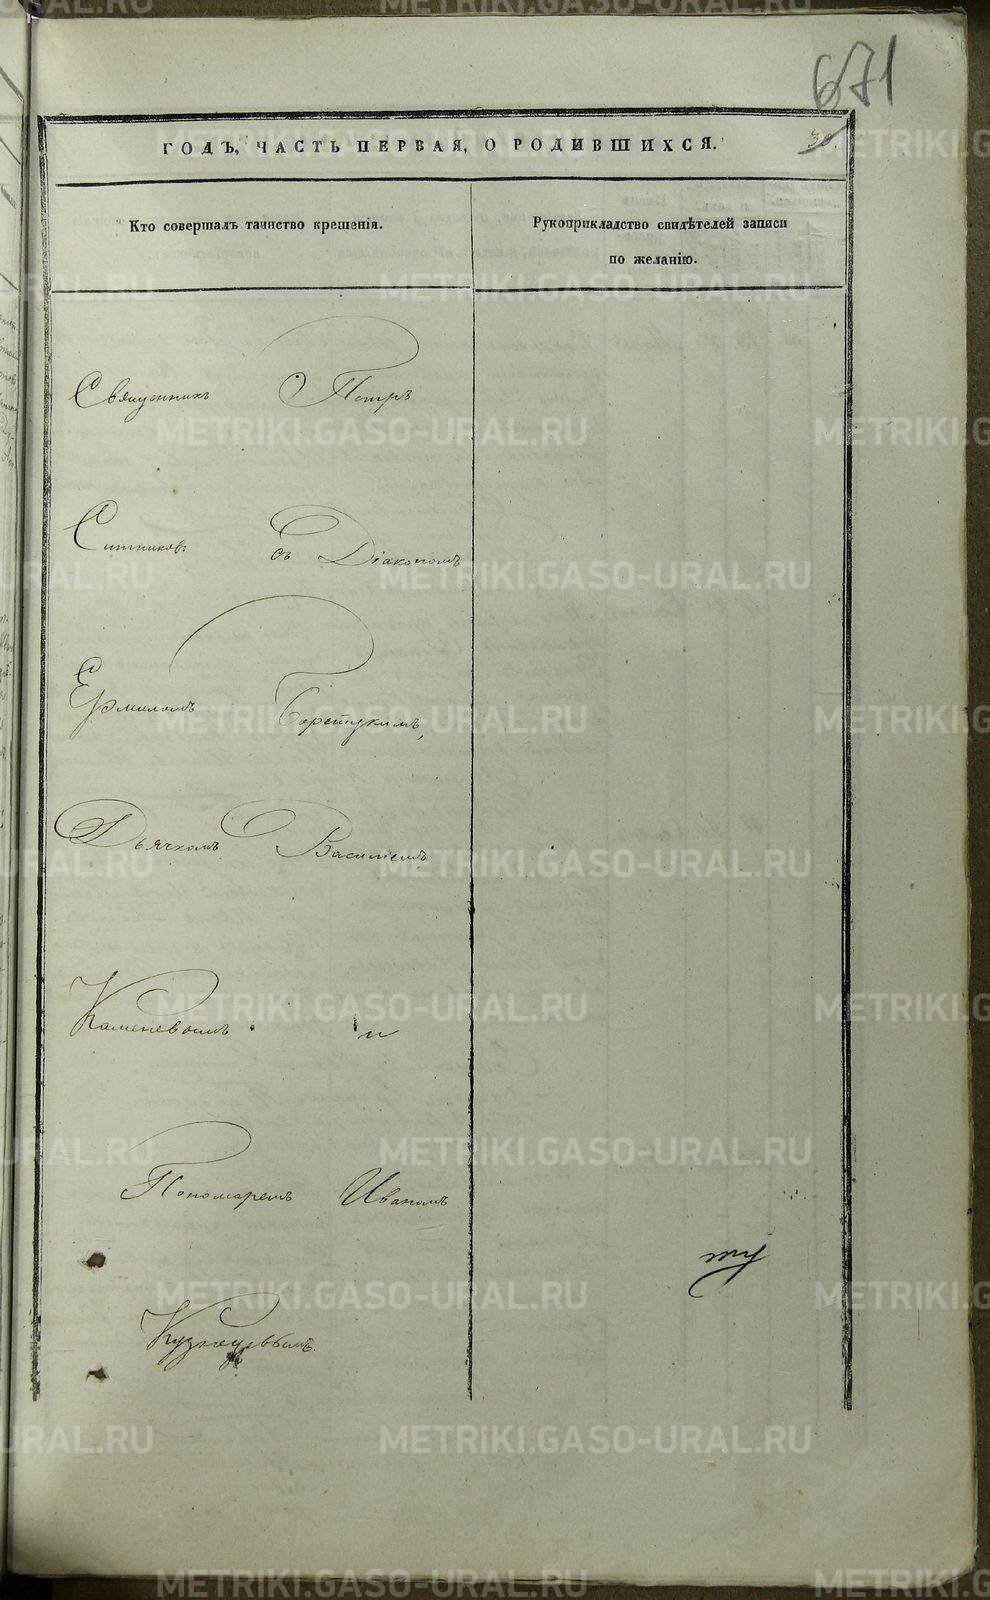 671
ГОДЪ, ЧАСТЬ ПЕРВАЯ, О РОДИВШИХСЯ.
30.
Кто совершалъ таинство крещенія.
Рукоприкладство свидѣтелей записи
по желанію.
Священникъ Петръ
Ситниковъ съ Діакономъ
Ермиломъ
Дьячкомъ Василіемъ
Каменевымъ и
Пономаремъ Иваномъ
Кузнецовымъ.
METRIKI.GASO-URAL.RU